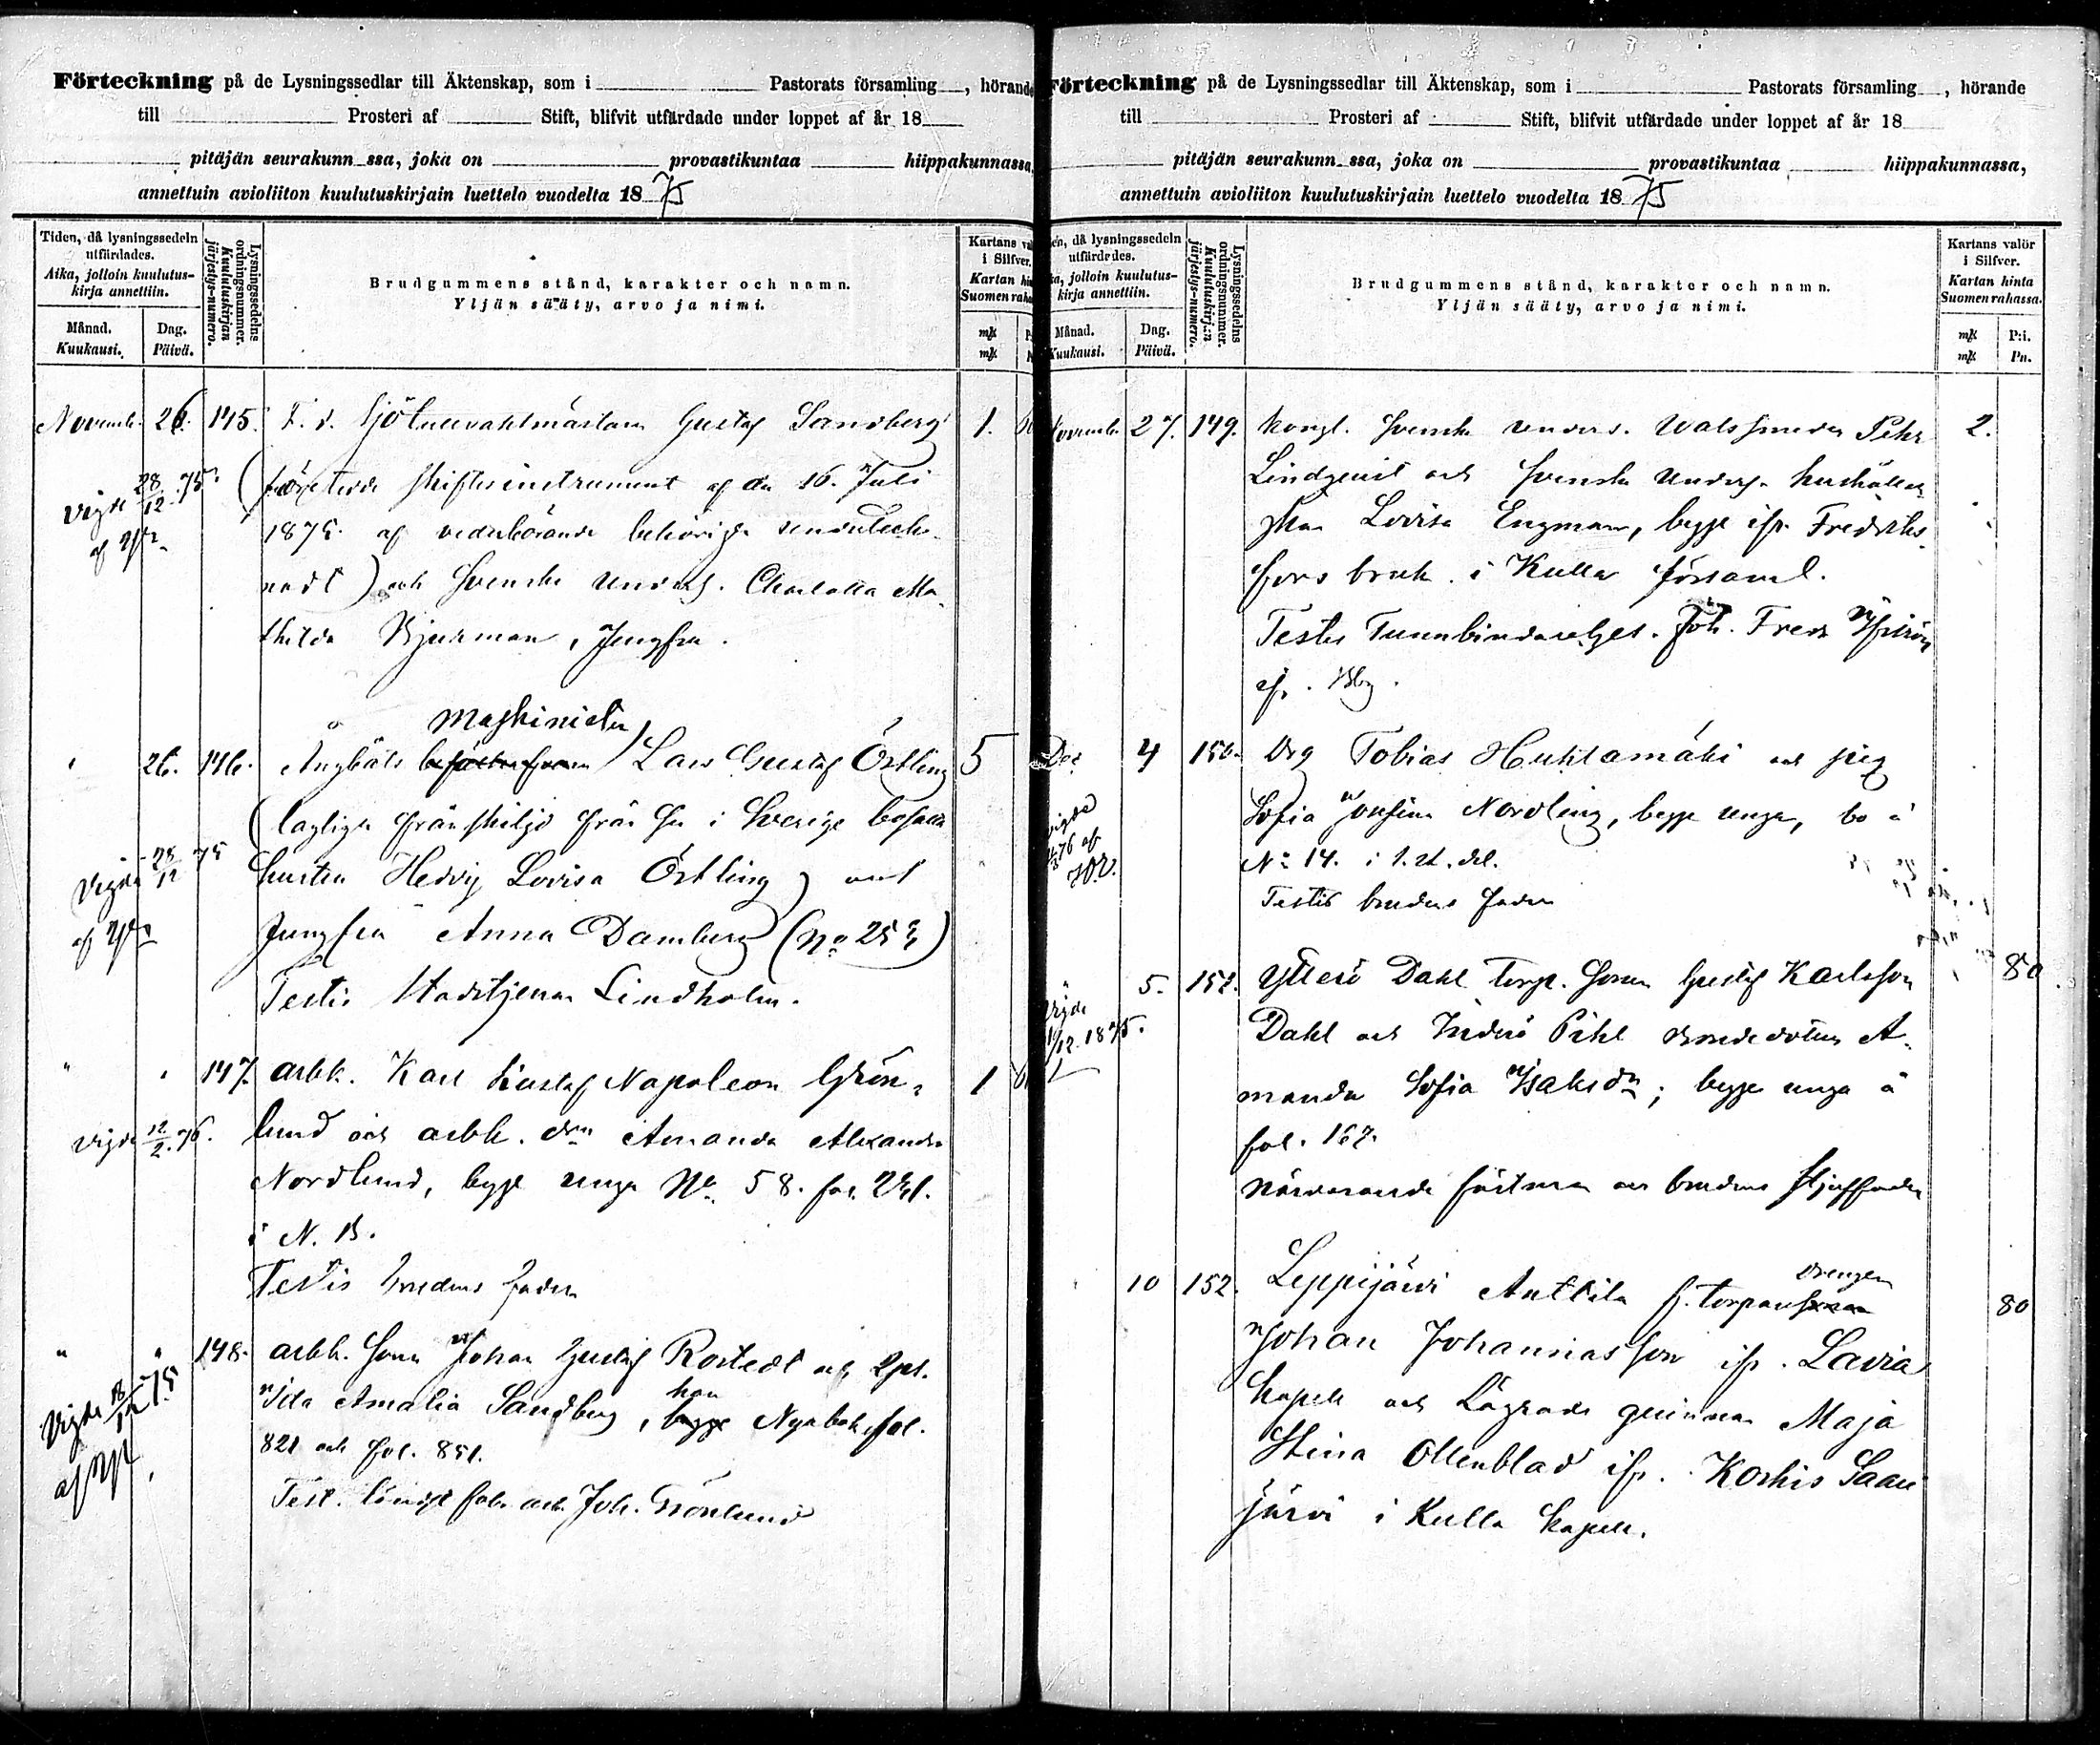 Förteckning på de Lysningssedlar till Äktenskap, som i Pastorats församling, hörande
till Prosteri af Stift, blifvit utfärdade under loppet af år 18
pitäjän seurakunn ssa, joka on provastikuntaa hiippakunnassa,
annettuin avioliiton kuulutuskirjain luettelo vuodelta 1875
Tiden, då lysningssedeln utfärdades.
Aika, jolloin kuulutus-
kirja annettiin.
Månad.
Kuukausi.
Dag.
Päivä.
Lysningssedelns
ordningsnummer.
Kuulutuskirjan
järjestys-numero.
Brudgummens stånd, karakter och namn.
Yljän sääty, arvo ja nimi.
Kartans
i Silfver.
Kartan
Suomen
mk
mk
Novemb. 26. 145. F. d. Gustaf Sandberg 1.
( skiftesinstrument af den 16. Juli
Vigde 28/12 75.
1875. af vederbörande behörigen
) och Svenska Unders. Charlotta Ma-
thilda Bjurman, Jungfru.
Maskinisten
26. 146. Ångbåts Lars Gustaf Östling 5
(lagligen från sin i Sverige
Vigde 28/12 75
hustru Hedvig Lovisa Östling) och
Jungfru Anna Damberg (No 253)
Testis Stadstjenar Lindholm.
" " 147. arbk. Karl Gustaf Napoleon Grön- 1
Vigde 12/2 76. lund och arbk. drn Amanda Alexandra
Nordlund, begge unga No. 58. fol. 221.
i N. B.
Testis brudens fader
" " 148. arbk. Son Johan Gustaf Rostedt och
Vigde 18/12 75
han
Ida Amalia Sandberg, begge fol.
821 och fol. 851.
Test. Joh. Grönlund
Förteckning på de Lysningssedlar till Äktenskap, som i Pastorats församling, hörande
till Prosteri af Stift, blifvit utfärdade under loppet af år 18
pitäjän seurakunn ssa, joka on provastikuntaa hiippakunnassa,
annettuin avioliiton kuulutuskirjain luettelo vuodelta 1875
då lysningssedeln
utfärdades.
jolloin kuulutus-
kirja annettiin.
Månad.
Kuukausi.
Dag.
Päivä.
Lysningssedelns
ordningsnummer.
Kuulutuskirjan
järjestys-numero.
Brudgummens stånd, karakter och namn.
Yljän sääty, arvo ja nimi.
Kartans valör
i Silfver.
Kartan hinta
Suomen rahassa.
mk
mk
P:i.
Pn.
Novemb. 27. 149. Kongl. Svenska Unders. Pehr 2.
Lindqvist och Svenska Unders.
Lovisa Engman, begge ifr. Fredriks-
fors bruk i Kulla församl.
Testis Joh. Fredr
Dec 4 150. Drg Tobias Huhtamäki och pig
Sofia Josefina Nordling, begge unga, bo å
Vigde
No 14. i 1. st. del.
Testis brudens fader
5. 151. Ytterö Dahl torp. Sonen Gustaf Karlsson 80
Vigde
12. 1875.
Dahl och Inderö Pihl bondedottren A-
manda Sofia Isaksdr; begge unga å
fol. 167.
närvarande fästman och brudens styffader
drengen
10 152. Leppijärvi Anttila f. torpare 80
Johan Johannesson ifr. Lavia
kapell och Lägrade qvinnan Maja
Stina Ollenblad ifr. Koskis Saari
järvi i Kulla kapell.